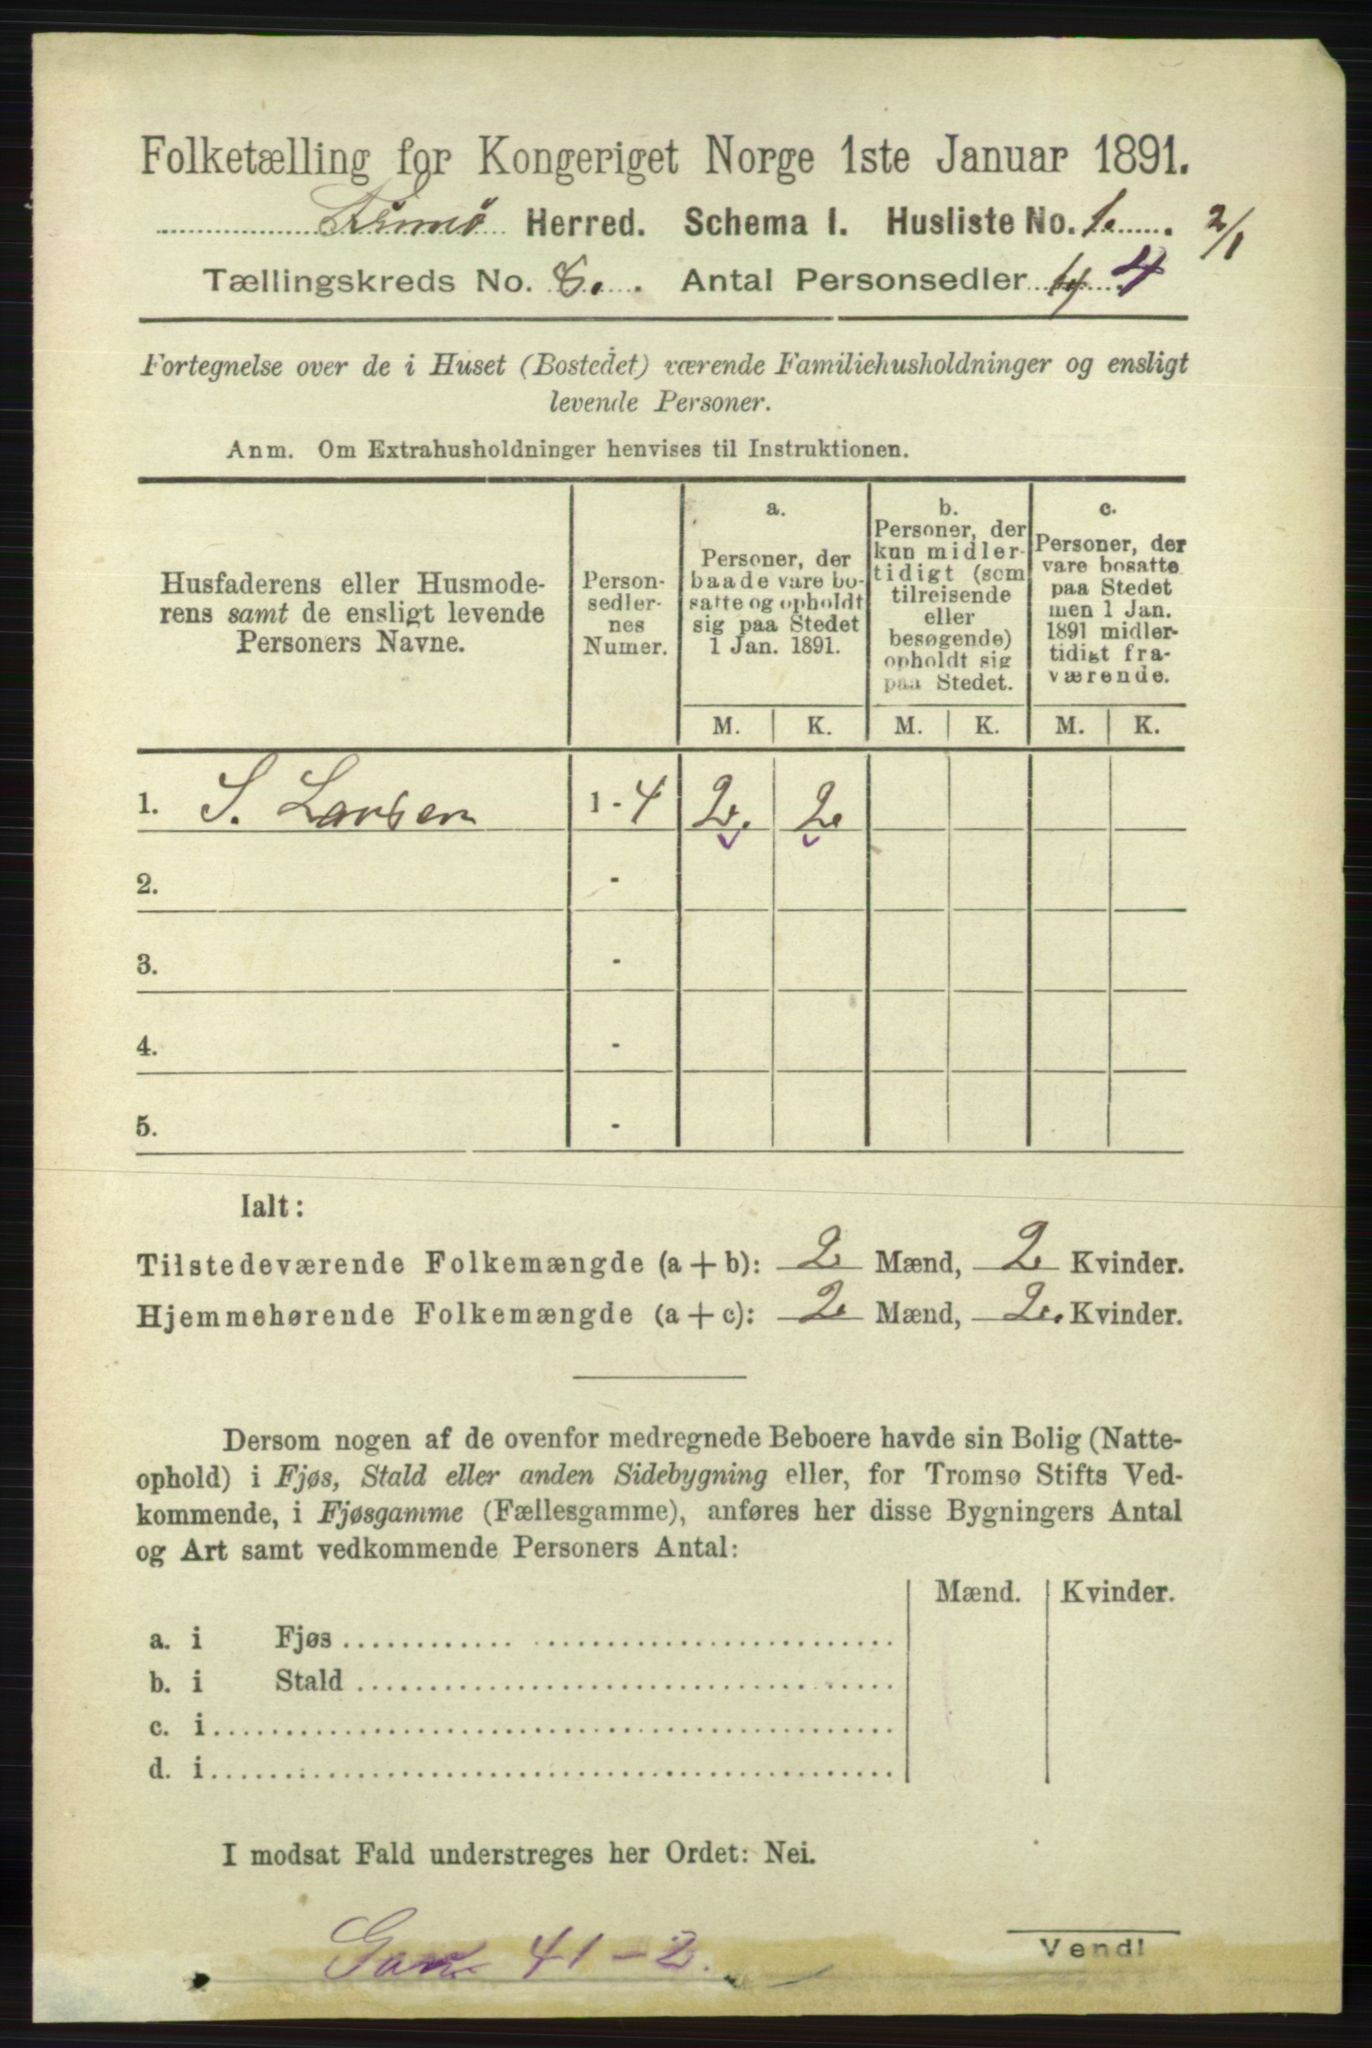 Folketælling for Kongeriget Norge 1ste Januar 1891.
Finnø Herred. Schema I. Husliste No. 1. 2/1
Tællingskreds No. 8. Antal Personsedler 4 4
Fortegnelse over de i Huset (Bostedet) værende Familiehusholdninger og ensligt
levende Personer.
Anm. Om Extrahusholdninger henvises til Instruktionen.
Husfaderens eller Husmode-
rens samt de ensligt levende
Personers Navne.
Person-
sedler-
nes
Numer.
a.
Personer, der
baade vare bo-
satte og opholdt
sig paa Stedet
1 Jan. 1891.
b.
Personer, der
kun midler-
tidigt (som
tilreisende
eller
besøgende)
opholdt sig
paa Stedet.
c.
Personer, der
vare bosatte
paa Stedet
men 1 Jan.
1891 midler-
tidigt fra-
værende.
M. K. M. K. M. K.
1. S. Larsen 1 - 4 2. 2.
2. -
3. -
4. -
5. -
Ialt:
Tilstedeværende Folkemængde (a + b): 2 Mænd, 2 Kvinder.
Hjemmehørende Folkemængde (a + c): 2 Mænd, 2. Kvinder.
Dersom nogen af de ovenfor medregnede Beboere havde sin Bolig (Natte-
ophold) i Fjøs, Stald eller anden Sidebygning eller, for Tromsø Stifts Ved-
kommende, i Fjøsgamme (Fællesgamme), anføres her disse Bygningers Antal
og Art samt vedkommende Personers Antal:
Mænd. Kvinder.
a. i Fjøs
b. i Stald
c. i
d. i
I modsat Fald understreges her Ordet: Nei.
41-2.
Vend!